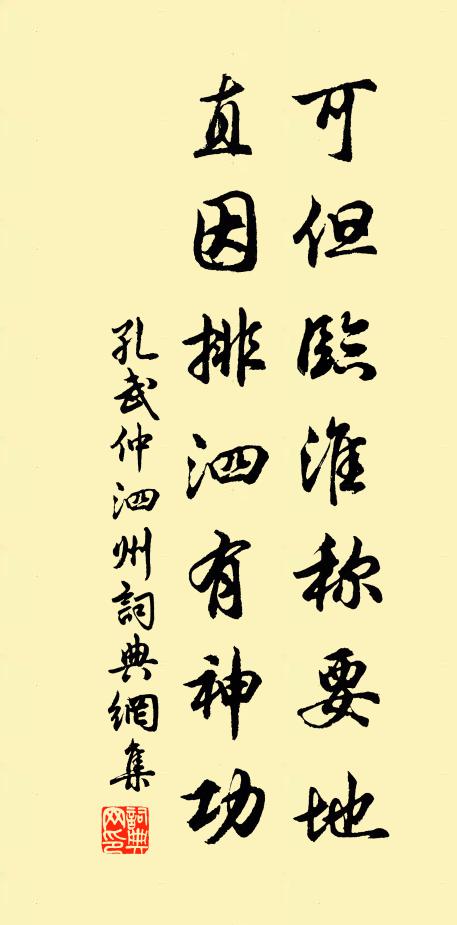 可但臨淮称要地
直因排泗有神功
孔武仲泗州詞典網集
詞典網印